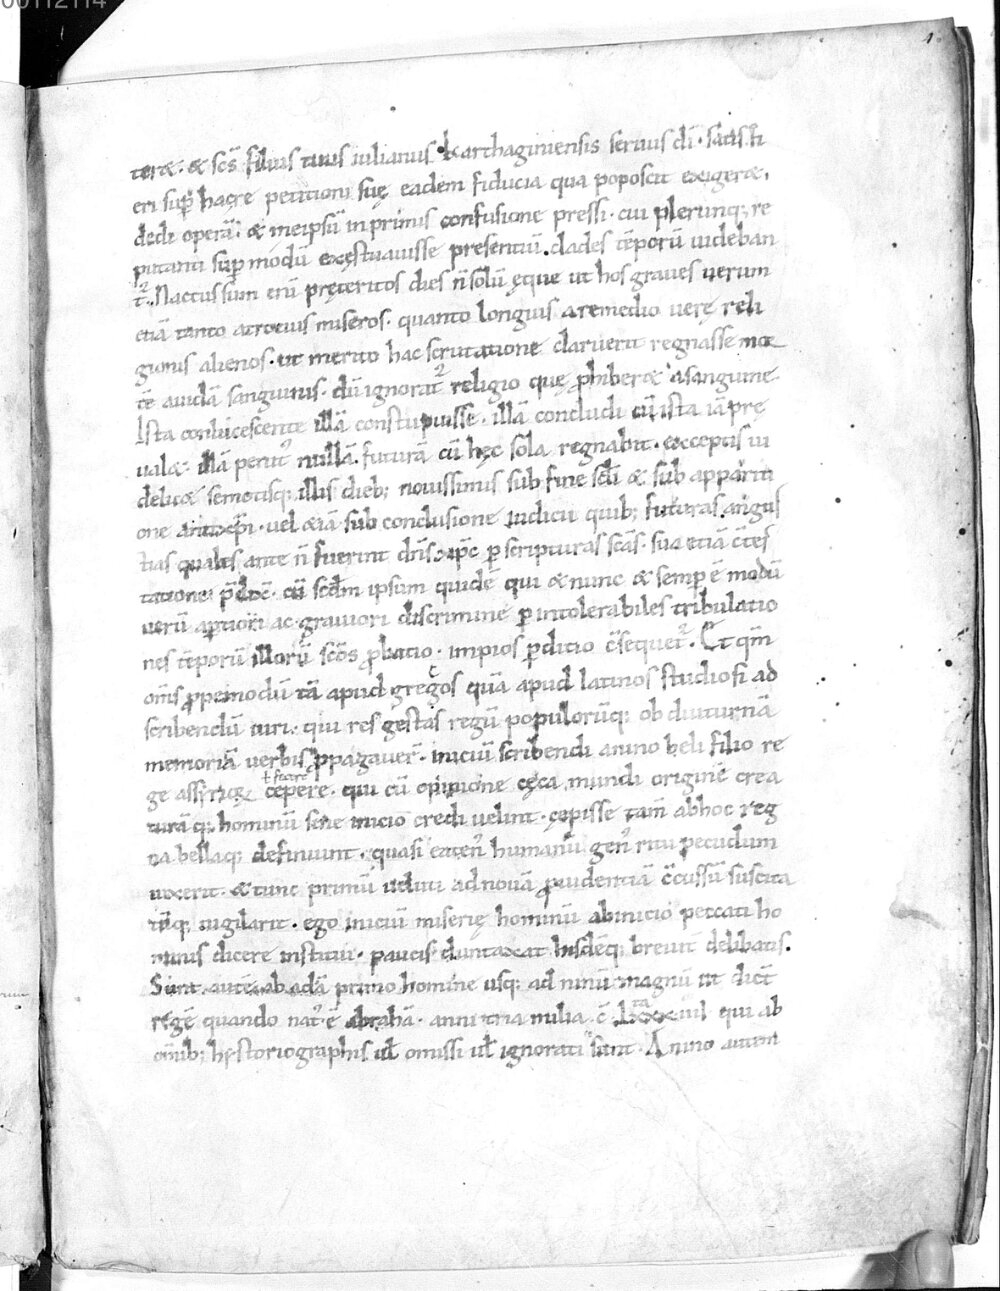 00112114
1.
teræ. & scs̄ filius tuus iulianus karthaginiensis seruus dī. satis fi
eri sup̄ hac re petitioni suę eadem fiducia qua poposcit exigeræ,
dedi operā. & meipsū inprimis confusione pressi. cui plerunq; re
putanti sup modū exęstuauisse presentiū. clades tēporū uideban
t᷑. Nactus sum enī pręteritos dies n̄ solū ęque ut hos graues uerum
etiā tanto atrocius miseros. quanto longius a remedio uerę reli
gionis alienos. ut merito hac scrutatione claruerit regnasse mor
tē auidā sanguinis. dū ignorat᷑ religio quę ꝓhiberæ a sanguine.
Ista conlucescente illā constupuisse. illā concludi cū ista iā pre
ualæ. illā penit᷒ nullā. futurā cū hęc sola regnabit. exceptis ui
delicæ semotisq; illis dieb; nouissimis sub fine scl̄i & sub appariti
one antixp̄i. uel æiā sub conclusione iudicii quib; futuras angus
tias quales ante n̄ fuerint dn̄s xp̄c p̱ scripturas scās. sua etiā c̄tes
tatione p̄dix̄. cū scdm̄ ipsum quidē qui & nunc & semp̱ ē modū
uerū aptiori ac grauiori discrimine p̱ intolerabiles tribulatio
nes tēporū illorū scōs ꝓbatio. impios p̱ditio c̄sequet᷑. Et qm̄
om̄s ꝓpemodū tā apud gregos quā apud latinos studiosi ad
scribendū uiri. qui res gestas regū populorūq; ob diuturnā
memoriā uerbis ꝓpagauer̄. iniciū scribendi a nino beli filio re
ꝉ fecere
ge assyriorꝝ cępere. qui cū opinione cęca mundi originē crea
turāq; hominū sine inicio credi uelint. cępisse tam̄ ab hoc reg
na bellaq; definiunt. quasi eaten᷒ humanū gen᷒ ritu pecudum
uixerit. & tunc primū ueluti ad nouā ꝓudentiā c̄cussū suscita
tūq; uigilarit. ego iniciū miserię hominū ab inicio peccati ho
minis dicere institui. paucis duntaxat hisdēq; breuit̄ delibatis.
Sunt autē ab adā primo homine usq; ad ninū magnū ut dict̄
regē quando nat᷒ ē abrahā. anni tria milia. c̄. Lxxxiiii. qui ab
om̄ib; hystoriographis ul̄ omissi ul̄ ignorati sunt. A nino autem